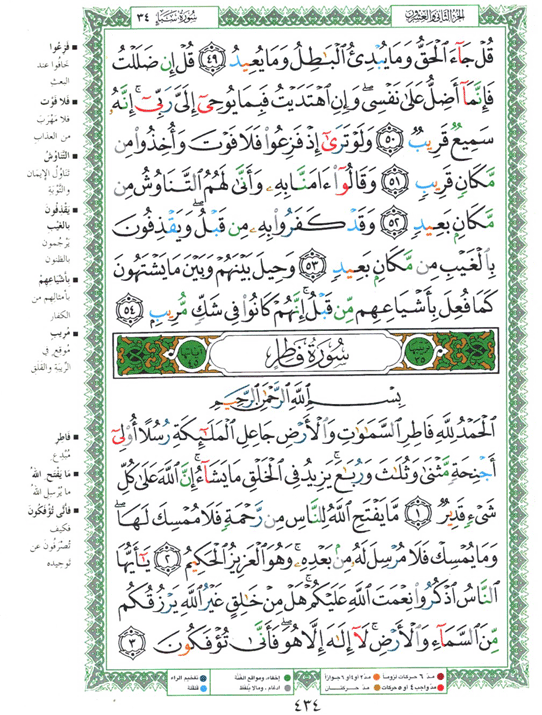 الجزء الثاني والعشرون
سورة سبإ ٣٤
قُلْ جَآءَ ٱلْحَقُّ وَمَا يُبْدِئُ ٱلْبَـٰطِلُ وَمَا يُعِيدُ ٤٩ قُلْ إِن ضَلَلْتُ
فَإِنَّمَآ أَضِلُّ عَلَىٰ نَفْسِى وَإِنِ ٱهْتَدَيْتُ فَبِمَا يُوحِىٓ إِلَىَّ رَبِّىٓ إِنَّهُۥ
سَمِيعٌ قَرِيبٌ ٥٠ وَلَوْ تَرَىٰٓ إِذْ فَزِعُوا۟ فَلَا فَوْتَ وَأُخِذُوا۟ مِن
مَّكَانٍ قَرِيبٍ ٥١ وَقَالُوٓا۟ ءَامَنَّا بِهِۦ وَأَنَّىٰ لَهُمُ ٱلتَّنَاوُشُ مِن
مَّكَانٍۭ بَعِيدٍ ٥٢ وَقَدْ كَفَرُوا۟ بِهِۦ مِن قَبْلُ وَيَقْذِفُونَ
بِٱلْغَيْبِ مِن مَّكَانٍۭ بَعِيدٍ ٥٣ وَحِيلَ بَيْنَهُمْ وَبَيْنَ مَا يَشْتَهُونَ
كَمَا فُعِلَ بِأَشْيَاعِهِم مِّن قَبْلُ إِنَّهُمْ كَانُوا۟ فِى شَكٍّ مُّرِيبٍۭ ٥٤
سُورَةُ فَاطِرٍ
بِسْمِ ٱللَّهِ ٱلرَّحْمَـٰنِ ٱلرَّحِيمِ
ٱلْحَمْدُ لِلَّهِ فَاطِرِ ٱلسَّمَـٰوَٰتِ وَٱلْأَرْضِ جَاعِلِ ٱلْمَلَـٰٓئِكَةِ رُسُلًا أُو۟لِىٓ
أَجْنِحَةٍ مَّثْنَىٰ وَثُلَـٰثَ وَرُبَـٰعَ يَزِيدُ فِى ٱلْخَلْقِ مَا يَشَآءُ إِنَّ ٱللَّهَ عَلَىٰ كُلِّ
شَىْءٍ قَدِيرٌ ١ مَّا يَفْتَحِ ٱللَّهُ لِلنَّاسِ مِن رَّحْمَةٍ فَلَا مُمْسِكَ لَهَا
وَمَا يُمْسِكْ فَلَا مُرْسِلَ لَهُۥ مِنۢ بَعْدِهِۦ وَهُوَ ٱلْعَزِيزُ ٱلْحَكِيمُ ٢ يَـٰٓأَيُّهَا
ٱلنَّاسُ ٱذْكُرُوا۟ نِعْمَتَ ٱللَّهِ عَلَيْكُمْ هَلْ مِنْ خَـٰلِقٍ غَيْرُ ٱللَّهِ يَرْزُقُكُم
مِّنَ ٱلسَّمَآءِ وَٱلْأَرْضِ لَآ إِلَـٰهَ إِلَّا هُوَ فَأَنَّىٰ تُؤْفَكُونَ ٣
■ فَزِعُوا
خافُوا عند
البعث
■ فلا فَوْت
فلا مَهْرَبَ
من العذاب
■ التّناوُش
تناوُلُ الإيمان
والتَّوْبَةِ
■ يَقْذِفُونَ
بالغَيْب
يَرْجُمون
بالظنون
■ بأشْيَاعِهِمْ
بأمثالِهم من
الكفار
■ مُريب
مُوقِعٍ في
الرِّيبَةِ والقَلَقِ
■ فاطِر
مُبْدِع
■ ما يَفْتَح الله
ما يُرْسِلِ الله
■ فأنّى تُؤفَكُونَ
فكيف
تُصْرَفُون عن
توحيده
مدّ ٦ حركات لزوماً
مدّ ٢ أو ٤ أو ٦ جوازاً
إخفاء، ومواقع الغنّة
تفخيم الراء
مدّ واجب ٤ أو ٥ حركات
مدّ حركتان
ادغام، وما لا يُلفظ
قلقلة
٤٣٤